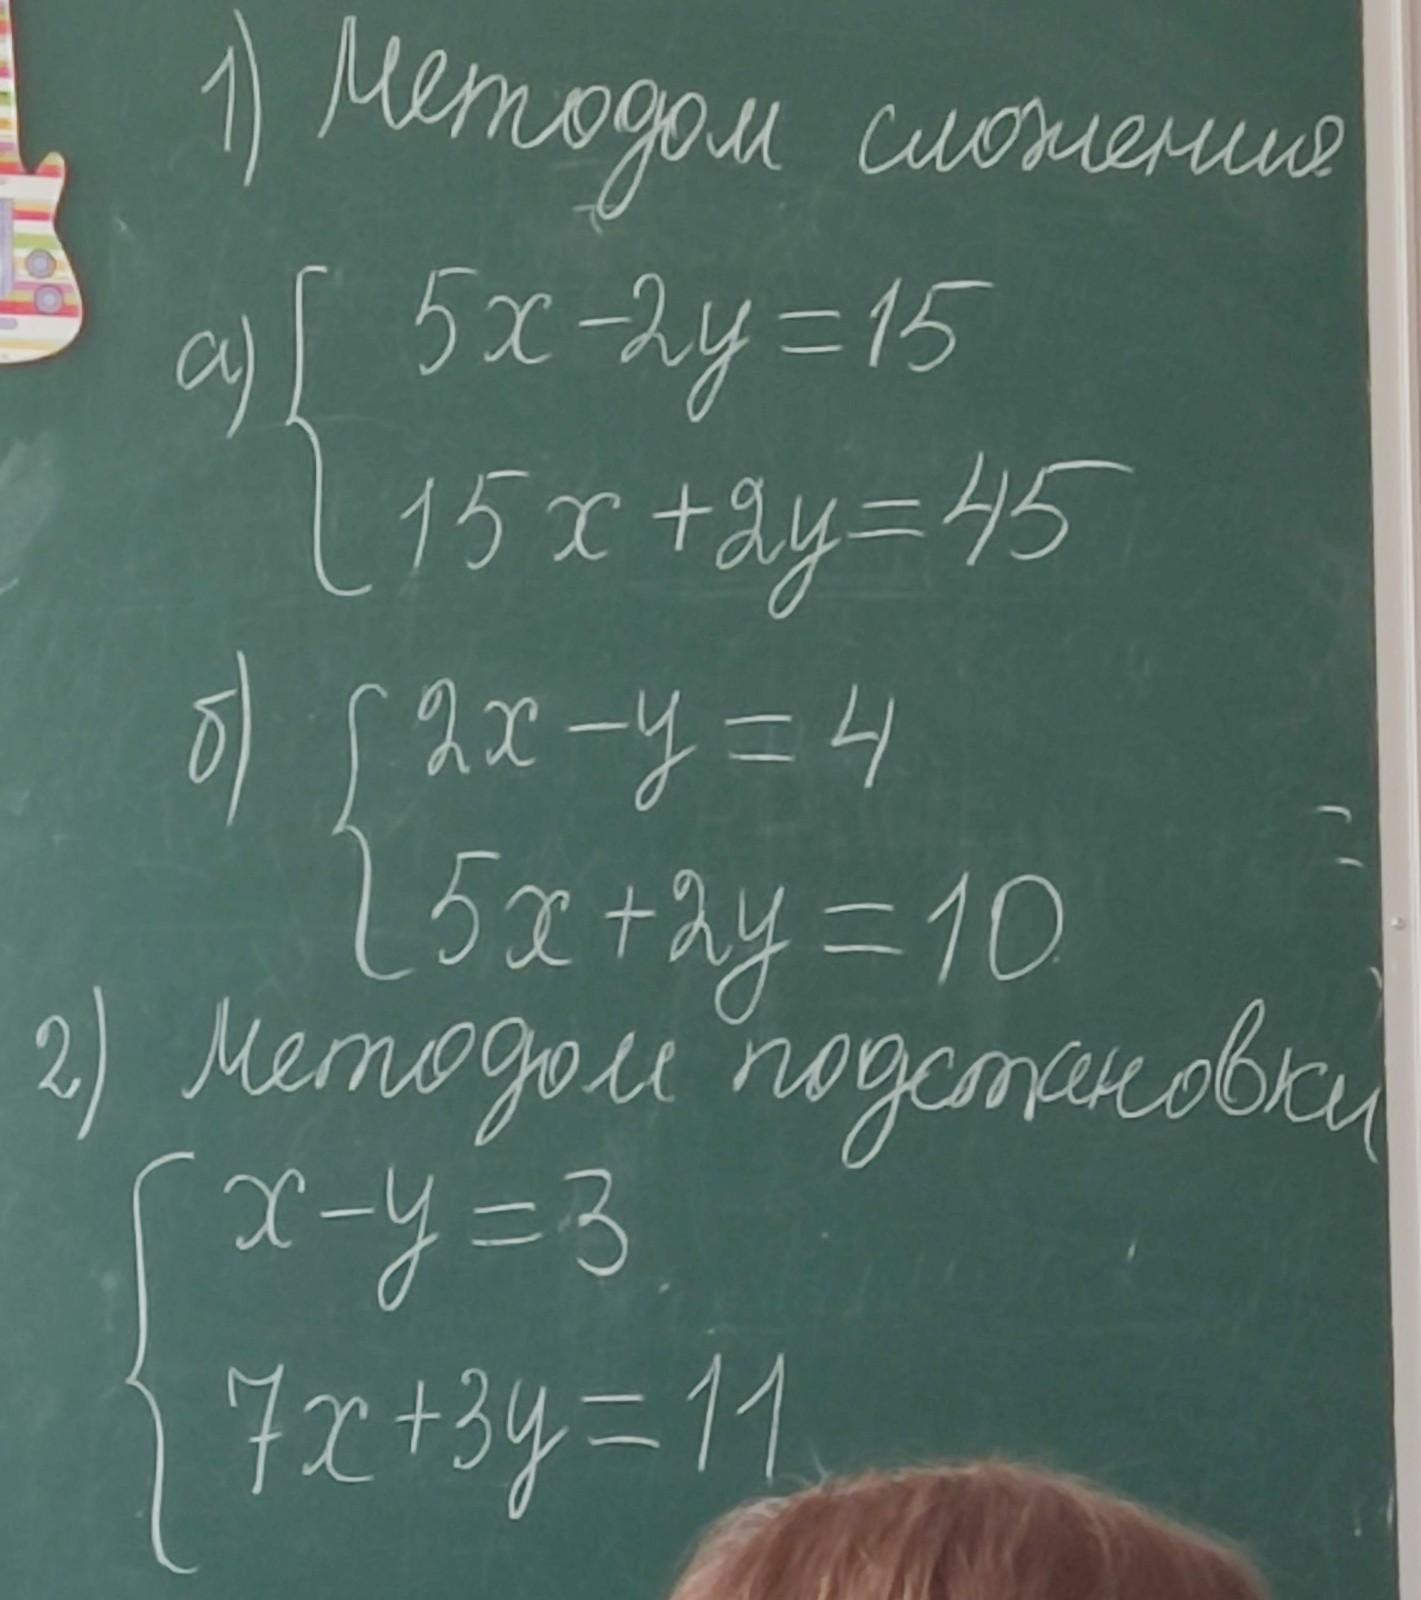 1) Методом сложения
а) { 5x - 2y = 15
15x + 2y = 45
б) { 2x - y = 4
5x + 2y = 10
=
2) Методом подстановки
{ x - y = 3
7x + 3y = 11